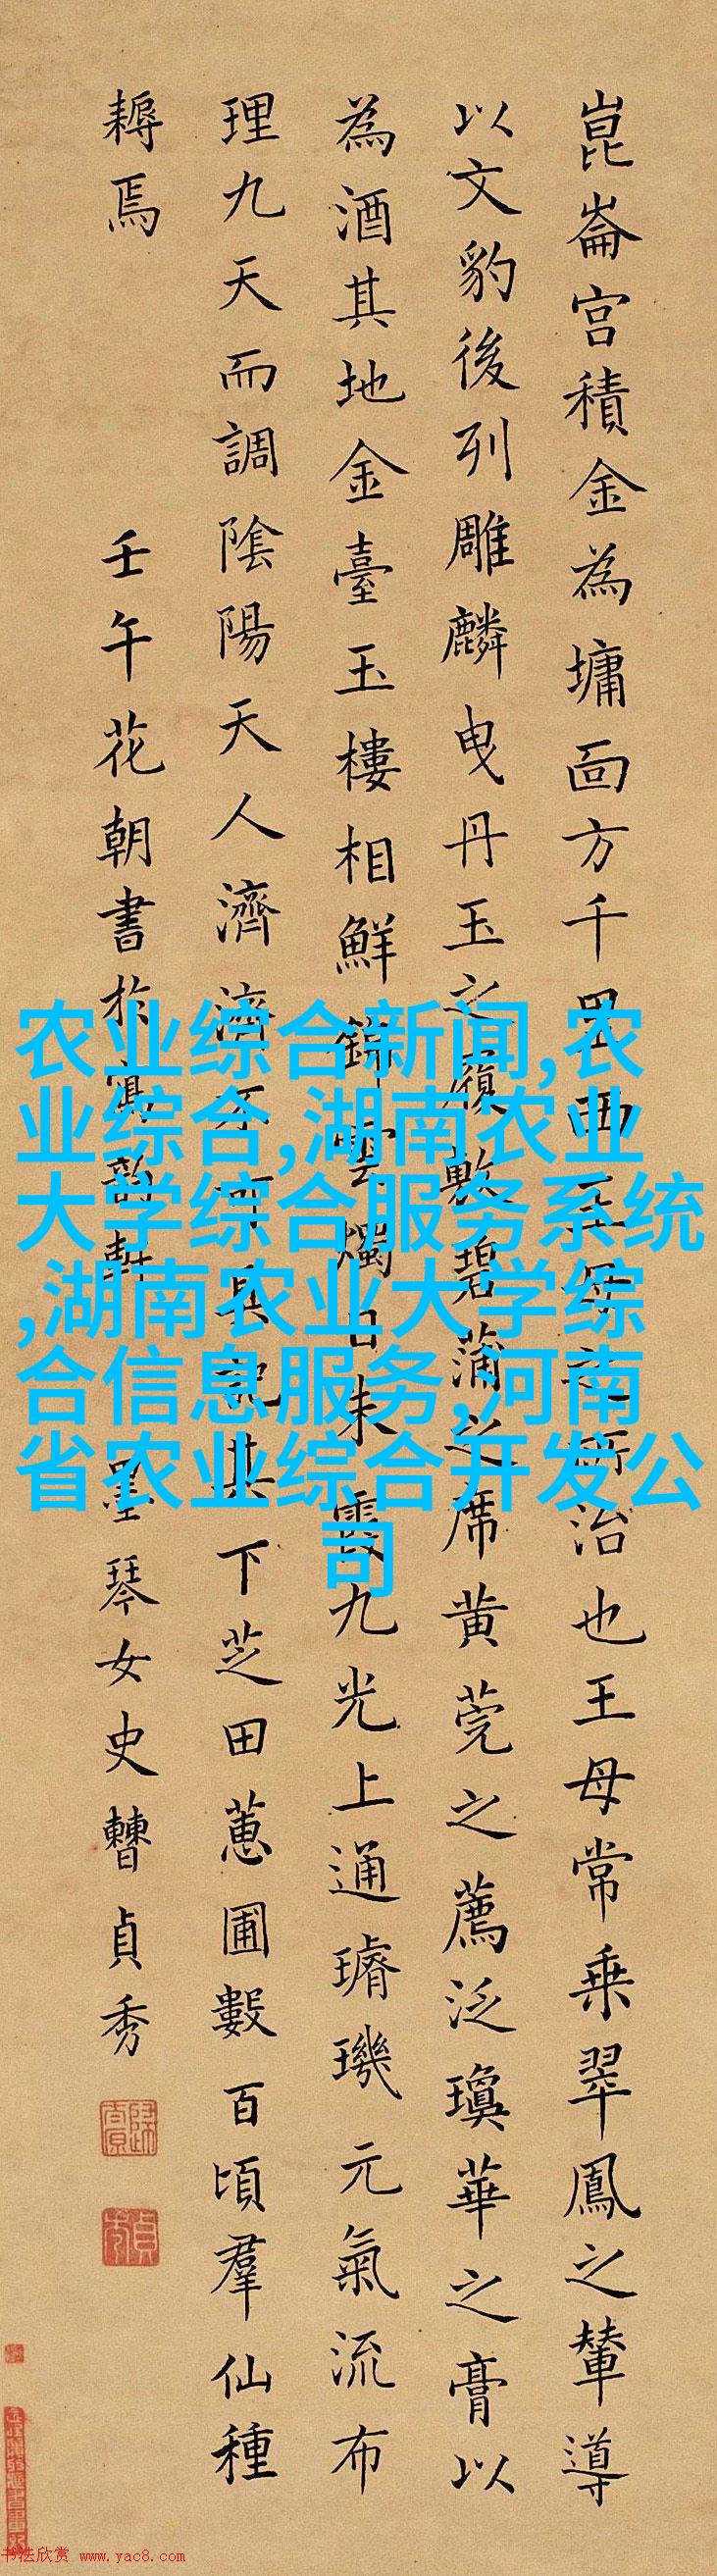 崑崙宫積金為墉面方千里西王母之所治也王母常乗翠鳳之輦導
以文豹後列雕麟曳丹玉之履敷碧蒲之席黄莞之薦泛瓊華之膏以
為酒其地金臺玉樓相鮮錦雲燭日朱霞九光上通璿璣元氣流布
理九天而調陰陽天人濟濟不可具記其下芝田蕙圃數百頃羣仙種
耨焉 壬午花朝書於寫韻軒 墨琴女史曹貞秀
农业综合新闻,农
业综合,湖南农业
大学综合服务系统
,湖南农业大学综
合信息服务,河南
省农业综合开发公
司
书法欣赏 www.yac8.com